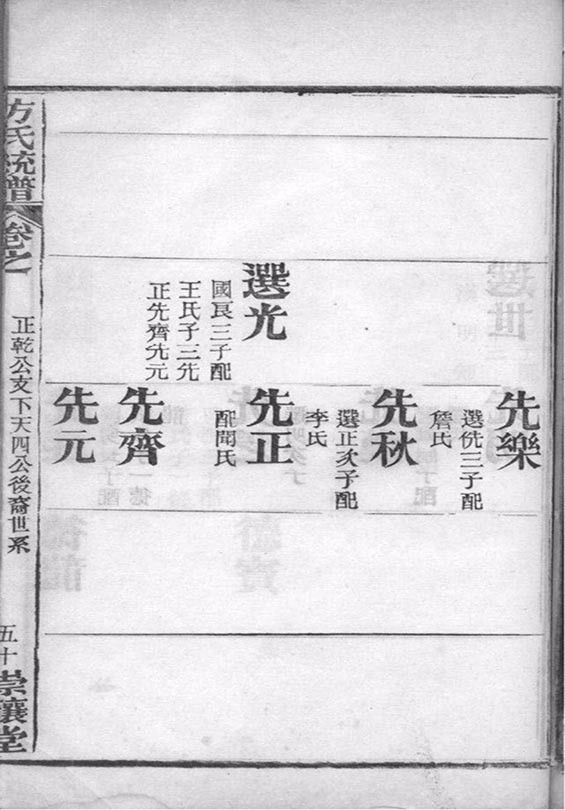 先樂
選侁三子配
詹氏
先秋
選正次子配
李氏
選光
國良三子配
王氏子三先
正先齊先元
先正
配聞氏
先齊
先元
方氏統譜
卷之
正乾公支下天四公後裔世系
五十
崇讓堂